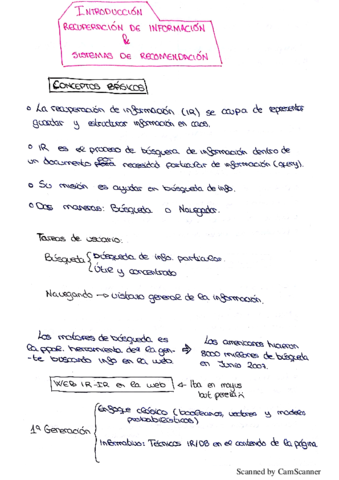 INTRODUCCIÓN
RECUPERACIÓN DE INFORMACIÓN
&
SISTEMAS DE RECOMENDACIÓN
CONCEPTOS BÁSICOS
○ La recuperación de información (IR) se ocupa de representar
guardar y estructurar información en casos.
○ IR es el proceso de búsqueda de información dentro de
un documento por necesidad particular de información (query).
○ Su misión es ayudar en búsqueda de info.
○ Dos maneras: Búsqueda o Navegador.
Tareas de usuario:
Búsqueda { búsqueda de info. particular.
Útil y concentrado
Navegando → Vistazo general de la información.
Los motores de búsqueda es
la ppal. herramienta de la gen-
-te buscando info en la web
⇒ Los americanos hicieron
8000 millones de búsqueda
en Junio 2007.
WEB IR-IR en la web ← Iba en mayus
but pereza x
1ª Generación { Enfoque clásico (booleanos, vectores y modelos
probabilísticos)
Informativo: Técnicas IR/DB en el contenido de la página
Scanned by CamScanner